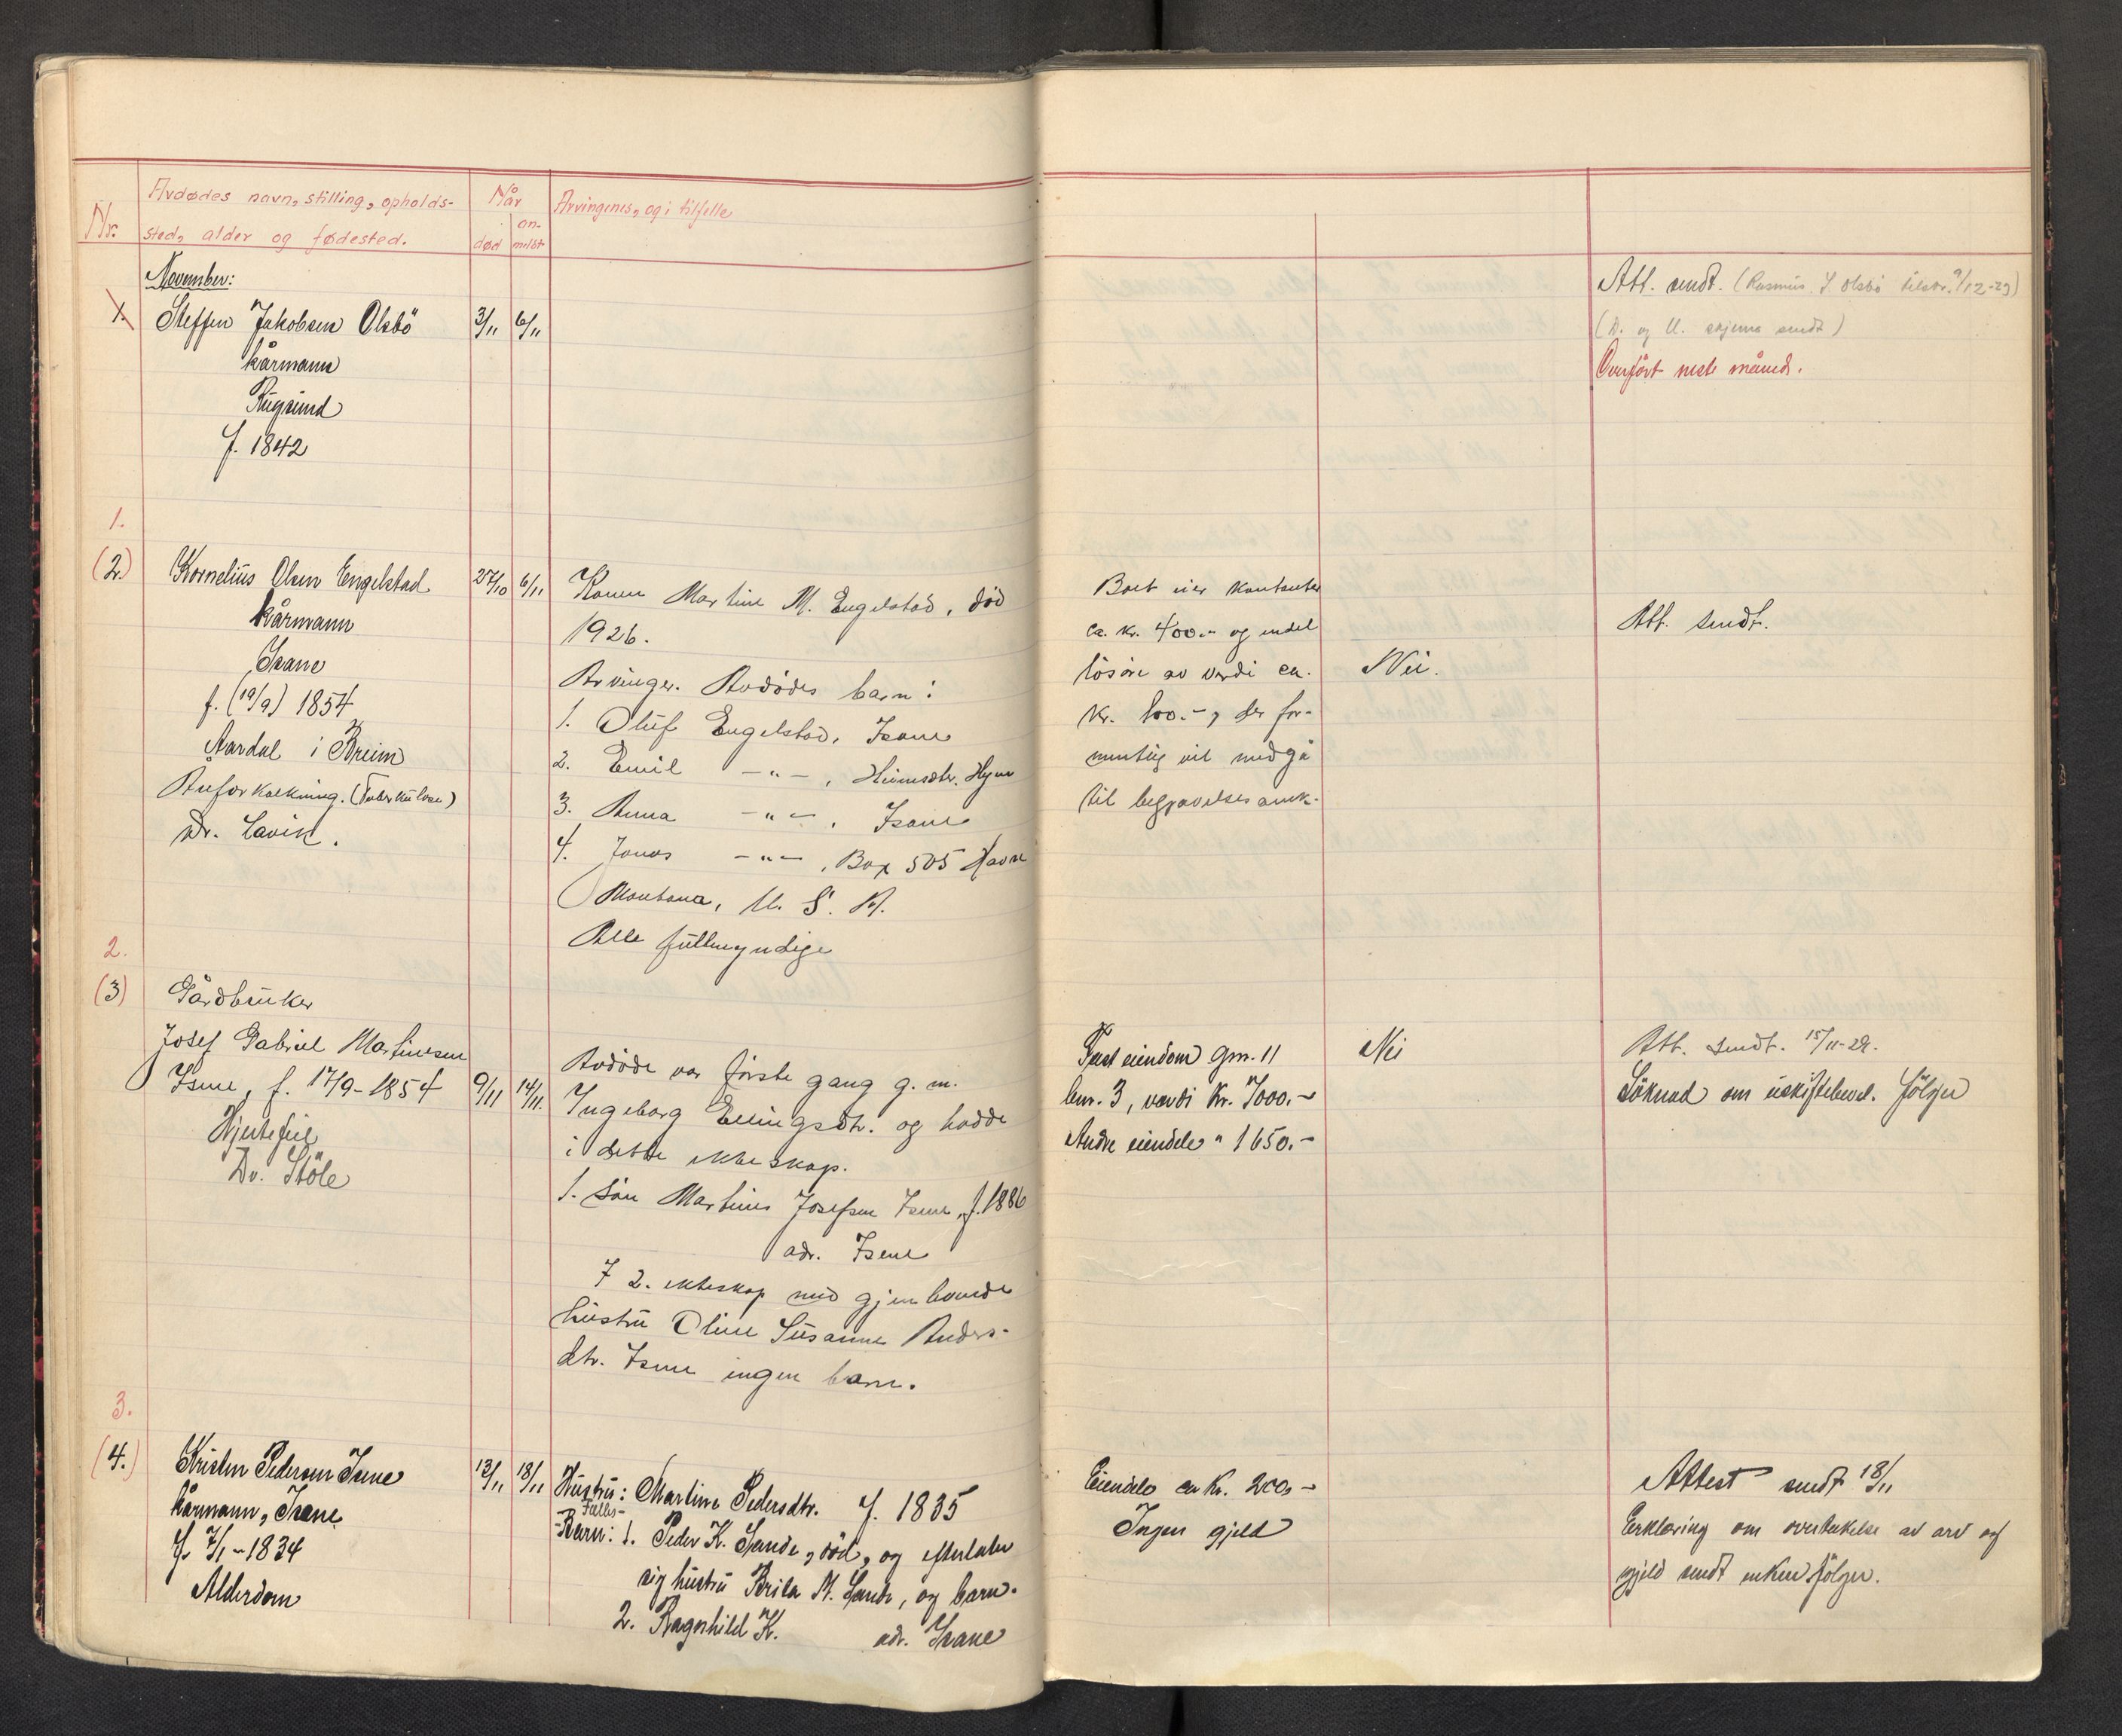 Nr.
Avdødes navn, stilling, opholds-
sted, alder og fødested.
Når
død
an-
meldt
Arvingenes, og i tilfelle
November:
1.
Steffen Jakobsen Olsbö
3/11 6/11
kårmann
Rugsund
f. 1842
Att. sendt. (Rasmus J Olsbö tilskr. 9/12-29)
(D. og U. skjema sendt)
Overfört neste måned.
1.
(2.)
Kornelius Olsen Engelstad
27/10 6/11
kårmann
Isane
f. (19/9) 1854
Aardal i Breim
Åreforkalkning. (Tuberkulose)
Dr. Lavik.
Konen Martine M. Engelstad, död
1926.
Arvinger. Avdödes barn:
1. Oluf Engelstad, Isane
2. Emil -"- , Heimseter. Hyen
3. Anna -"- , Isane
4. Jonas -"- , Box 505 Havre
Montana, U. S. A.
Alle fullmyndige
Boet eier kontanter
ca. kr. 400.- og endel
lösöre av verdi ca.
kr. 100.-, der for-
mentlig vil medgå
til begravelsesomk.
Nei.
Att. sendt.
2.
(3)
Gårdbruker
Josef Gabriel Martinesen
Isene, f. 17/9-1854
9/11 14/11.
Hjertefeil
Dr. Stöle
Avdöde var förste gang g. m.
Ingeborg Ellingsdtr. og hadde
i dette ekteskap.
1. Sön Martines Josefsen Isene, f. 1886
adr. Isene
I 2. ekteskap med gjenlevende
hustru Oline Susanne Anders-
dtr. Isene ingen barn.
Fast eiendom gnr. 11
bnr. 3, verdi kr. 7000.-
Andre eiendele " 1650.-
Nei
Att. sendt. 15/11-29.
Söknad om uskiftebevil. fölger
3.
(4.)
Kristen Pedersen Isene
12/11 18/11
kårmann, Isene
f. 7/1-1834
Alderdom
Hustru: Martine Pedersdtr. f. 1835
Felles-
Barn: 1. Peder K. Sande, död, og efterlater
sig hustru Brita M. Sande, og barn.
2. Ragnhild K. adr. Isane
Eiendele ca kr. 200.-
Ingen gjeld
Attest sendt 18/11
Erklæring om overtakelse av arv og
gjeld sendt enken fölger.